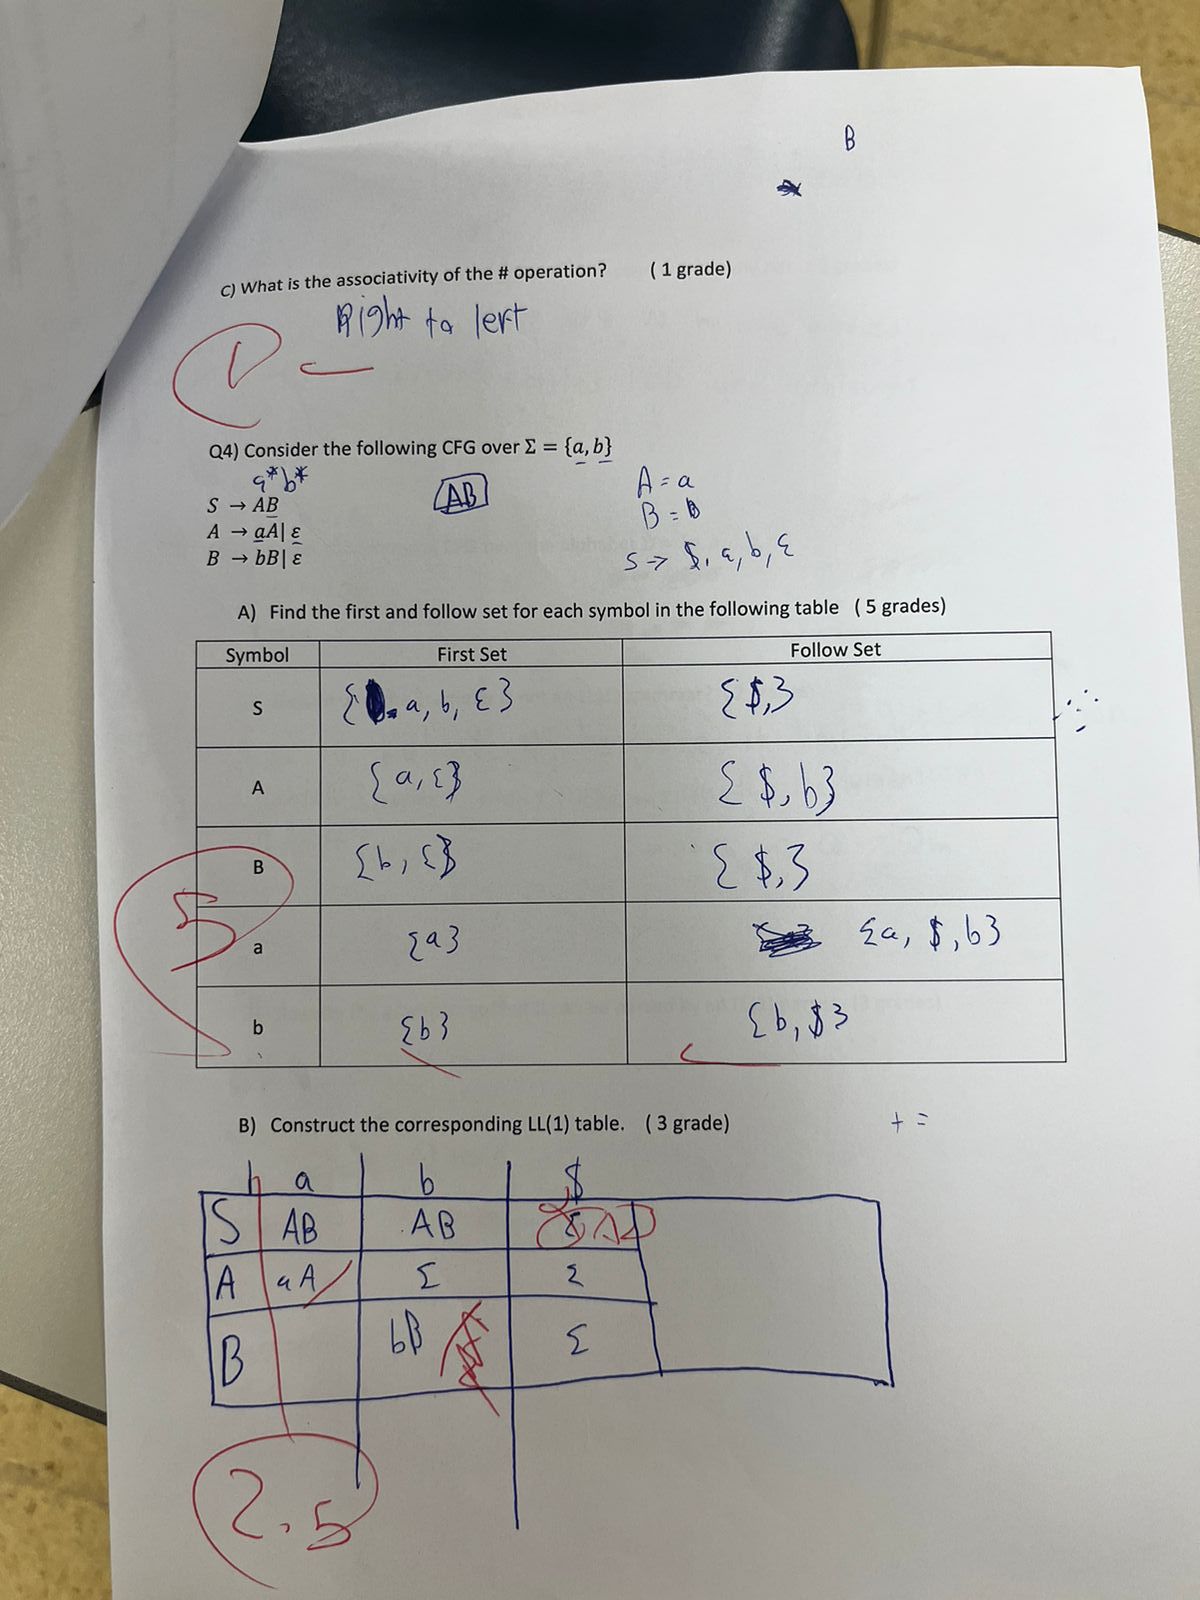 B
C) What is the associativity of the # operation? ( 1 grade)
Right to left
1
Q4) Consider the following CFG over Σ = {a, b}
a*b*
S → AB
A → aA| ε
B → bB| ε
AB
A = a
B = b
S → $, a, b, ε
A) Find the first and follow set for each symbol in the following table ( 5 grades)
Symbol First Set Follow Set
S { a, b, ε} {$,}
A {a, ε} { $, b}
B {b, ε} { $,}
a {a} {a, $, b}
b {b} {b, $}
5
B) Construct the corresponding LL(1) table. ( 3 grade)
+ =
a b $
S AB AB
A aA Σ Σ
B bB Σ
2.5